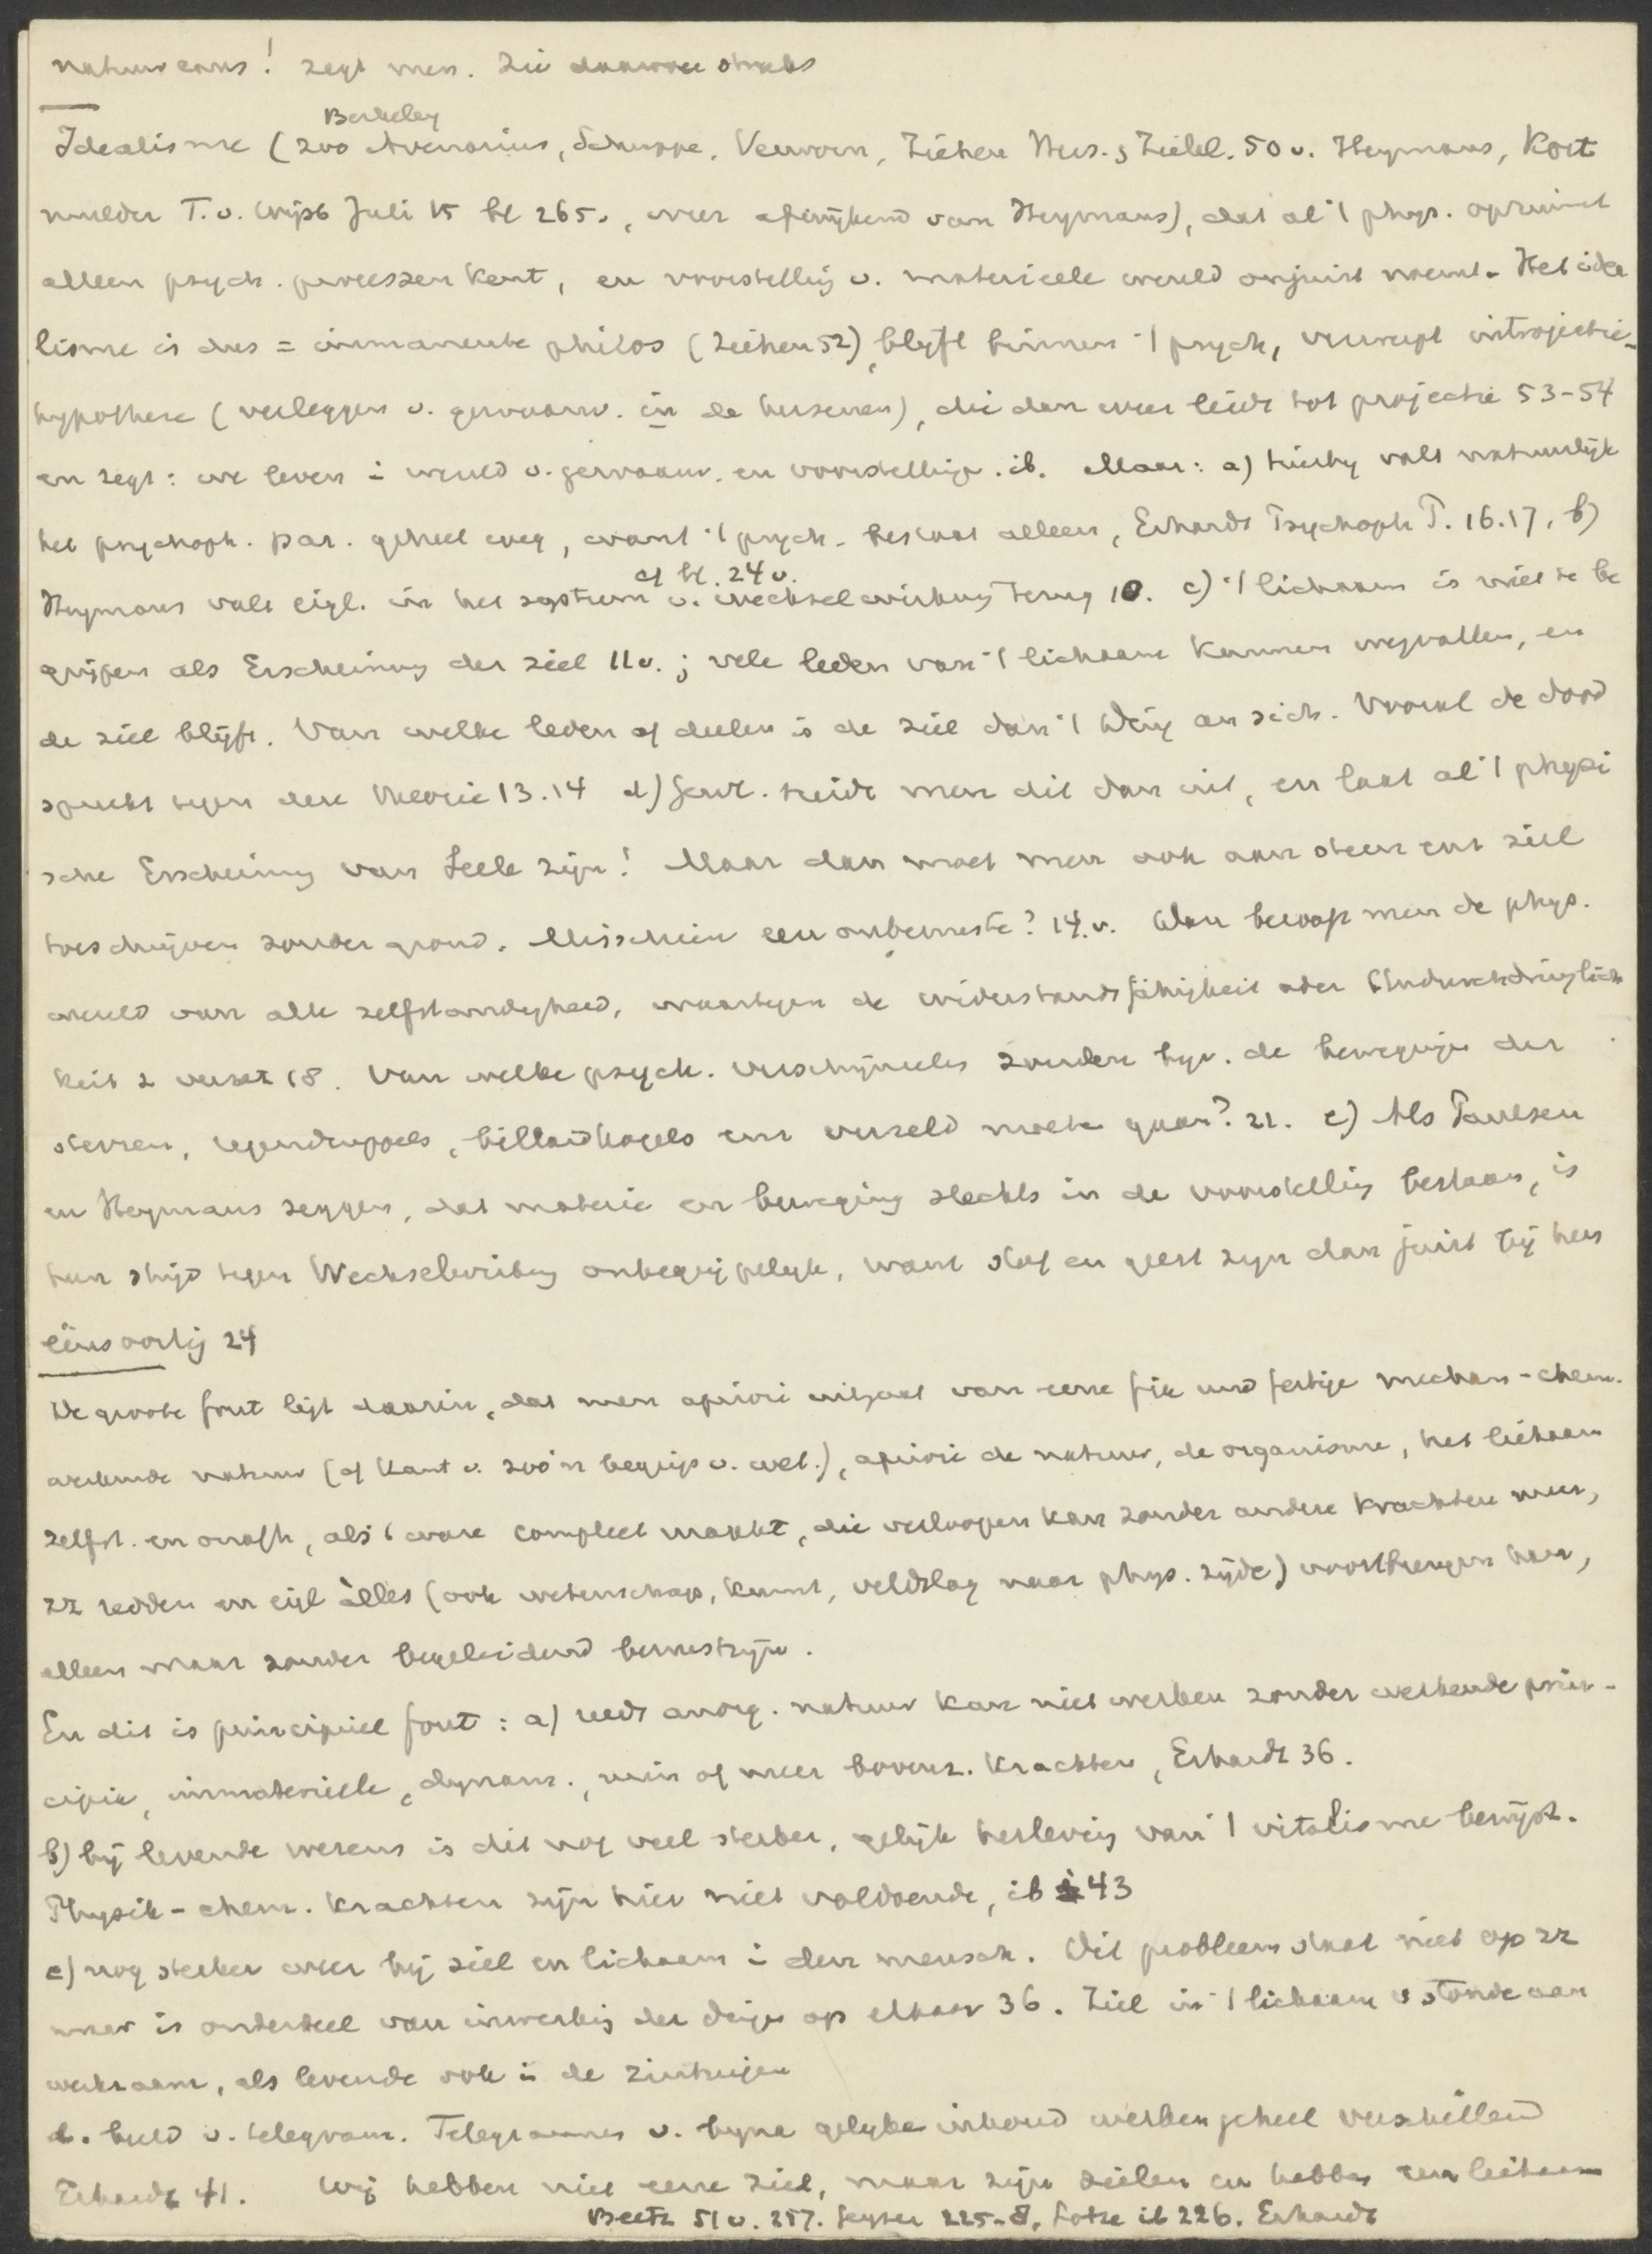 natuur eens! zegt men. Zie daarover straks
Berkeley
Idealisme (zoo Avenarius, Schuppe, Verworn, Ziehen Hers. & Zielel. 50 v. Heymans, Kort
mulder T. v. Wijsb Juli 15 bl 265v., weer afwijkend van Heymans), dat al 't phys. opruimt
alleen psych. processen kent, en voorstelling v. materieele wereld onjuist noemt. Het idea
lisme is dus = immanente philos (Ziehen 52), blijft binnen 't psych, verwerpt introjectie-
hypothese (verleggen v. gewaarw. in de hersenen), die dan weer leidt tot projectie 53-54
en zegt: we leven i wereld v. gewaarw. en voorstellinge. ib. Maar: a) hierby valt natuurlijk
het psychoph. par. geheel weg, want 't psych. bestaat alleen, Erhardt Psychoph P. 16.17, b)
cf bl. 24 v.
Heymans valt eigl. in het systeem v. Wechselwirkung terug 10. c) 't lichaam is niet te be
grijpen als Erscheinung der ziel 11 v.; vele leden van 't lichaam kunnen wegvallen, en
de ziel blijft. Van welke leden of deelen is de ziel dan 't Ding an sich. Vooral de dood
spreekt tegen deze theorie 13.14 d) breidt men dit dan uit, en laat al 't physi
sche Erscheinung van Seele zijn! Maar dan moet men ook aan steen enz ziel
toeschrijven zonder grond. Misschien een onbewuste? 14 v. Dan beroof men de phys.
wereld van alle zelfstandigheid, waartegen de widerstandsfähigkeit oder Undurchdringlich
keit z verzet 18. Van welke psych. verschijnselen zouden bijv. de bewegingen der
sterren, regendruppels, billardkogels enz verzeld moeten gaan? 21. e) Als Paulsen
en Heymans zeggen, dat materie en beweging slechts in de voorstelling bestaan, is
hun strijd tegen Wechselwirkung onbegrijpelijk, want stof en geest zijn dan juist bij hen
eensoortig 24
De groote fout ligt daarin, dat men apriori uitgaat van eene fix und fertige mechan-chem.
werkende natuur (cf Kant v. zoo'n begrip v. wet.), apriori de natuur, de organisme, het lichaam
zelfst. en onafh, als 't ware compleet maakt, die verloopen kan zonder andere krachten meer,
zz redden en eigl àlles (ook wetenschap, kunst, veldslag naar phys. zijde) voortbrengen kan,
alleen maar zonder begeleidend bewustzijn.
En dit is principieel fout: a) reeds anorg. natuur kan niet werken zonder werkende prin-
cipie, immaterieele, dynam., min of meer bovenz. krachten, Erhardt 36.
b) bij levende wezens is dit nog veel sterker, gelijk herleving van 't vitalisme bewijst.
Physik-chem. krachten zijn hier niet voldoende, ib 43
c) nog sterker weer bij ziel en lichaam i den mensch. Dit probleem staat niet op zz
maar is onderdeel van inwerking der dinge op elkaar 36. Ziel in 't lichaam v stonde aan
werkzaam, als levende ook in de zintuigen
d. beeld v. telegram. Telegrammen v. bijna gelijke inhoud werken geheel verschillend
Erhardt 41. Wij hebben niet eene ziel, maar zijn zielen en hebben een lichaam
Beetz 51 v. 257. Geyser 225-8, Lotze ib 226. Erhardt